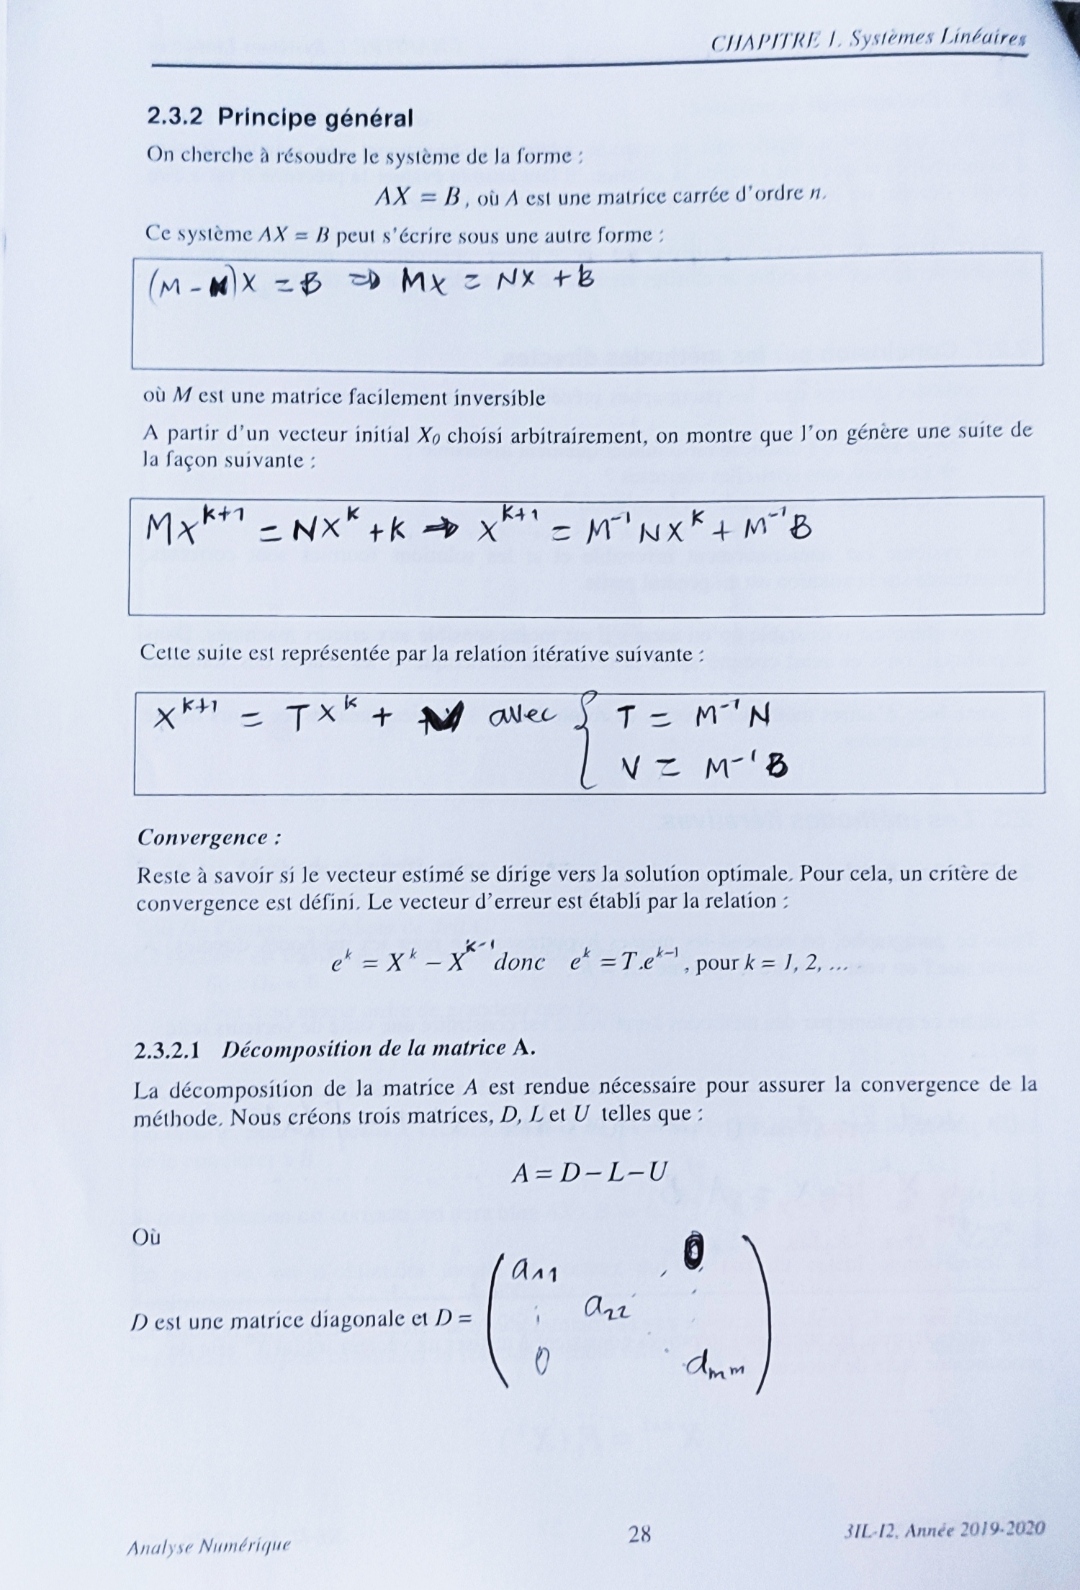 CHAPITRE 1. Systèmes Linéaires
2.3.2 Principe général
On cherche à résoudre le système de la forme :
AX = B, où A est une matrice carrée d'ordre n.
Ce système AX = B peut s'écrire sous une autre forme :
(M - N)X = B ⇒ MX = NX + B
où M est une matrice facilement inversible
A partir d'un vecteur initial X₀ choisi arbitrairement, on montre que l'on génère une suite de
la façon suivante :
MX^{k+1} = NX^k + k ⇒ X^{k+1} = M^{-1} NX^k + M^{-1} B
Cette suite est représentée par la relation itérative suivante :
X^{k+1} = TX^k + V avec { T = M^{-1} N
V = M^{-1} B
Convergence :
Reste à savoir si le vecteur estimé se dirige vers la solution optimale. Pour cela, un critère de
convergence est défini. Le vecteur d'erreur est établi par la relation :
e^k = X^k – X^{k-1} donc e^k = T.e^{k–1}, pour k = 1, 2, ...
2.3.2.1 Décomposition de la matrice A.
La décomposition de la matrice A est rendue nécessaire pour assurer la convergence de la
méthode. Nous créons trois matrices, D, L et U telles que :
A = D – L – U
Où
a₁₁ 0
D est une matrice diagonale et D = a₂₂
0 dₘₘ
Analyse Numérique 28 3IL-I2, Année 2019-2020